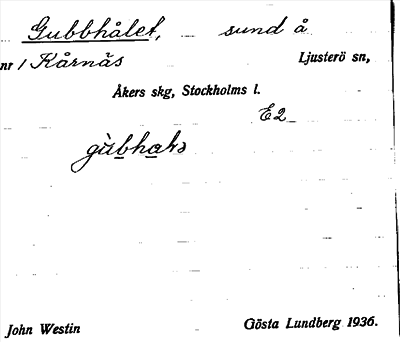 Gubbhålet, sund å
nr 1 Kårnäs Ljusterö sn,
Åkers skg, Stockholms l.
E2
John Westin Gösta Lundberg 1936.